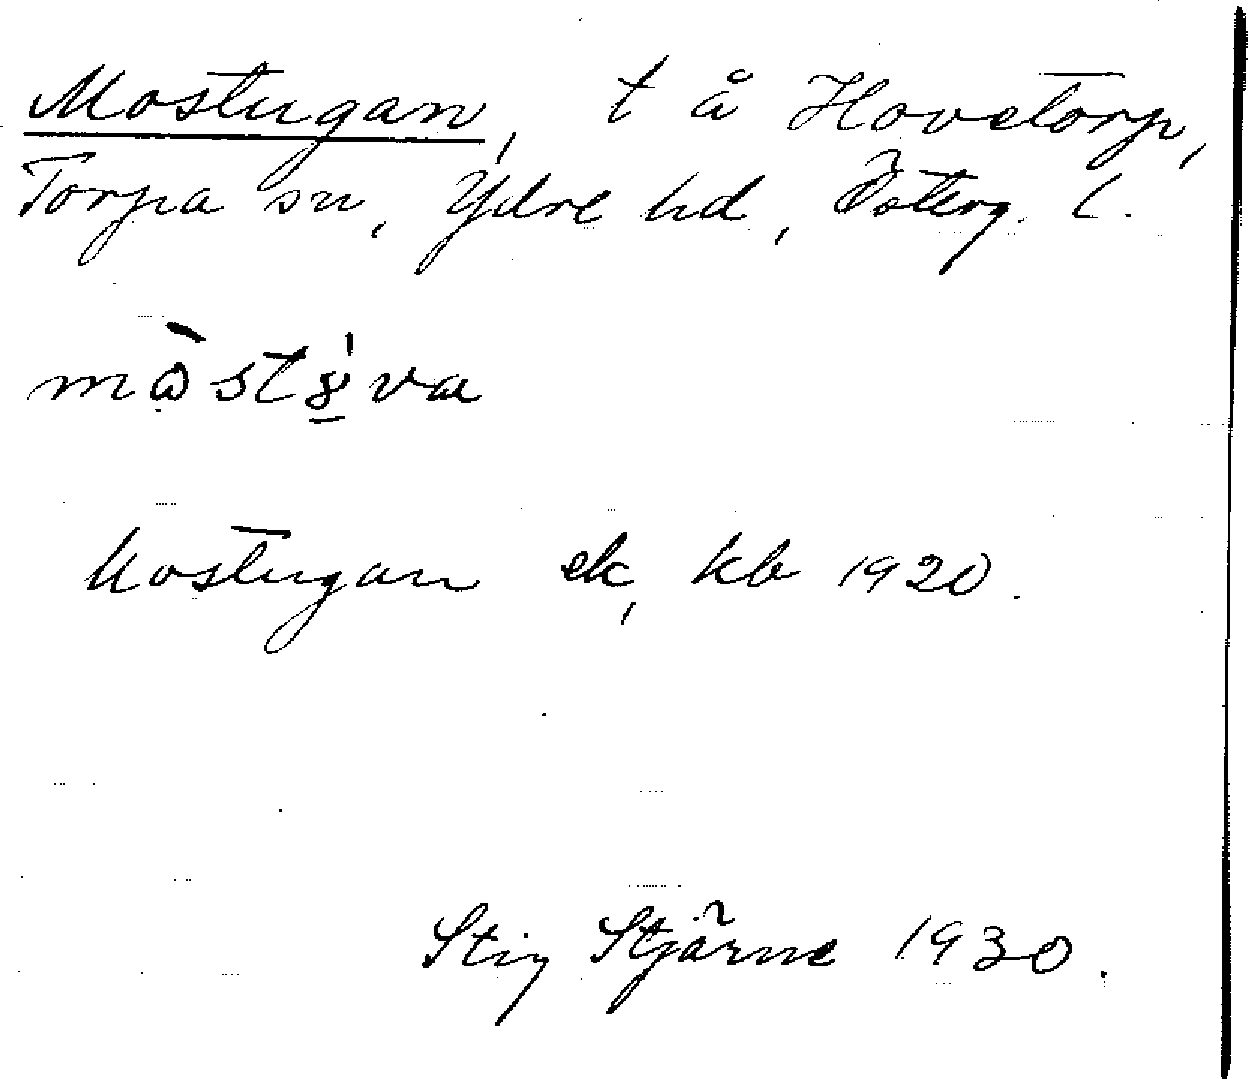 Mostugan, t å Hovetorp,
Torpa sn, Ydre hd, Österg. l.
mòstȣ̱̍va
Mostugan ek, kb 1920.
Stig Stjärne 1930.